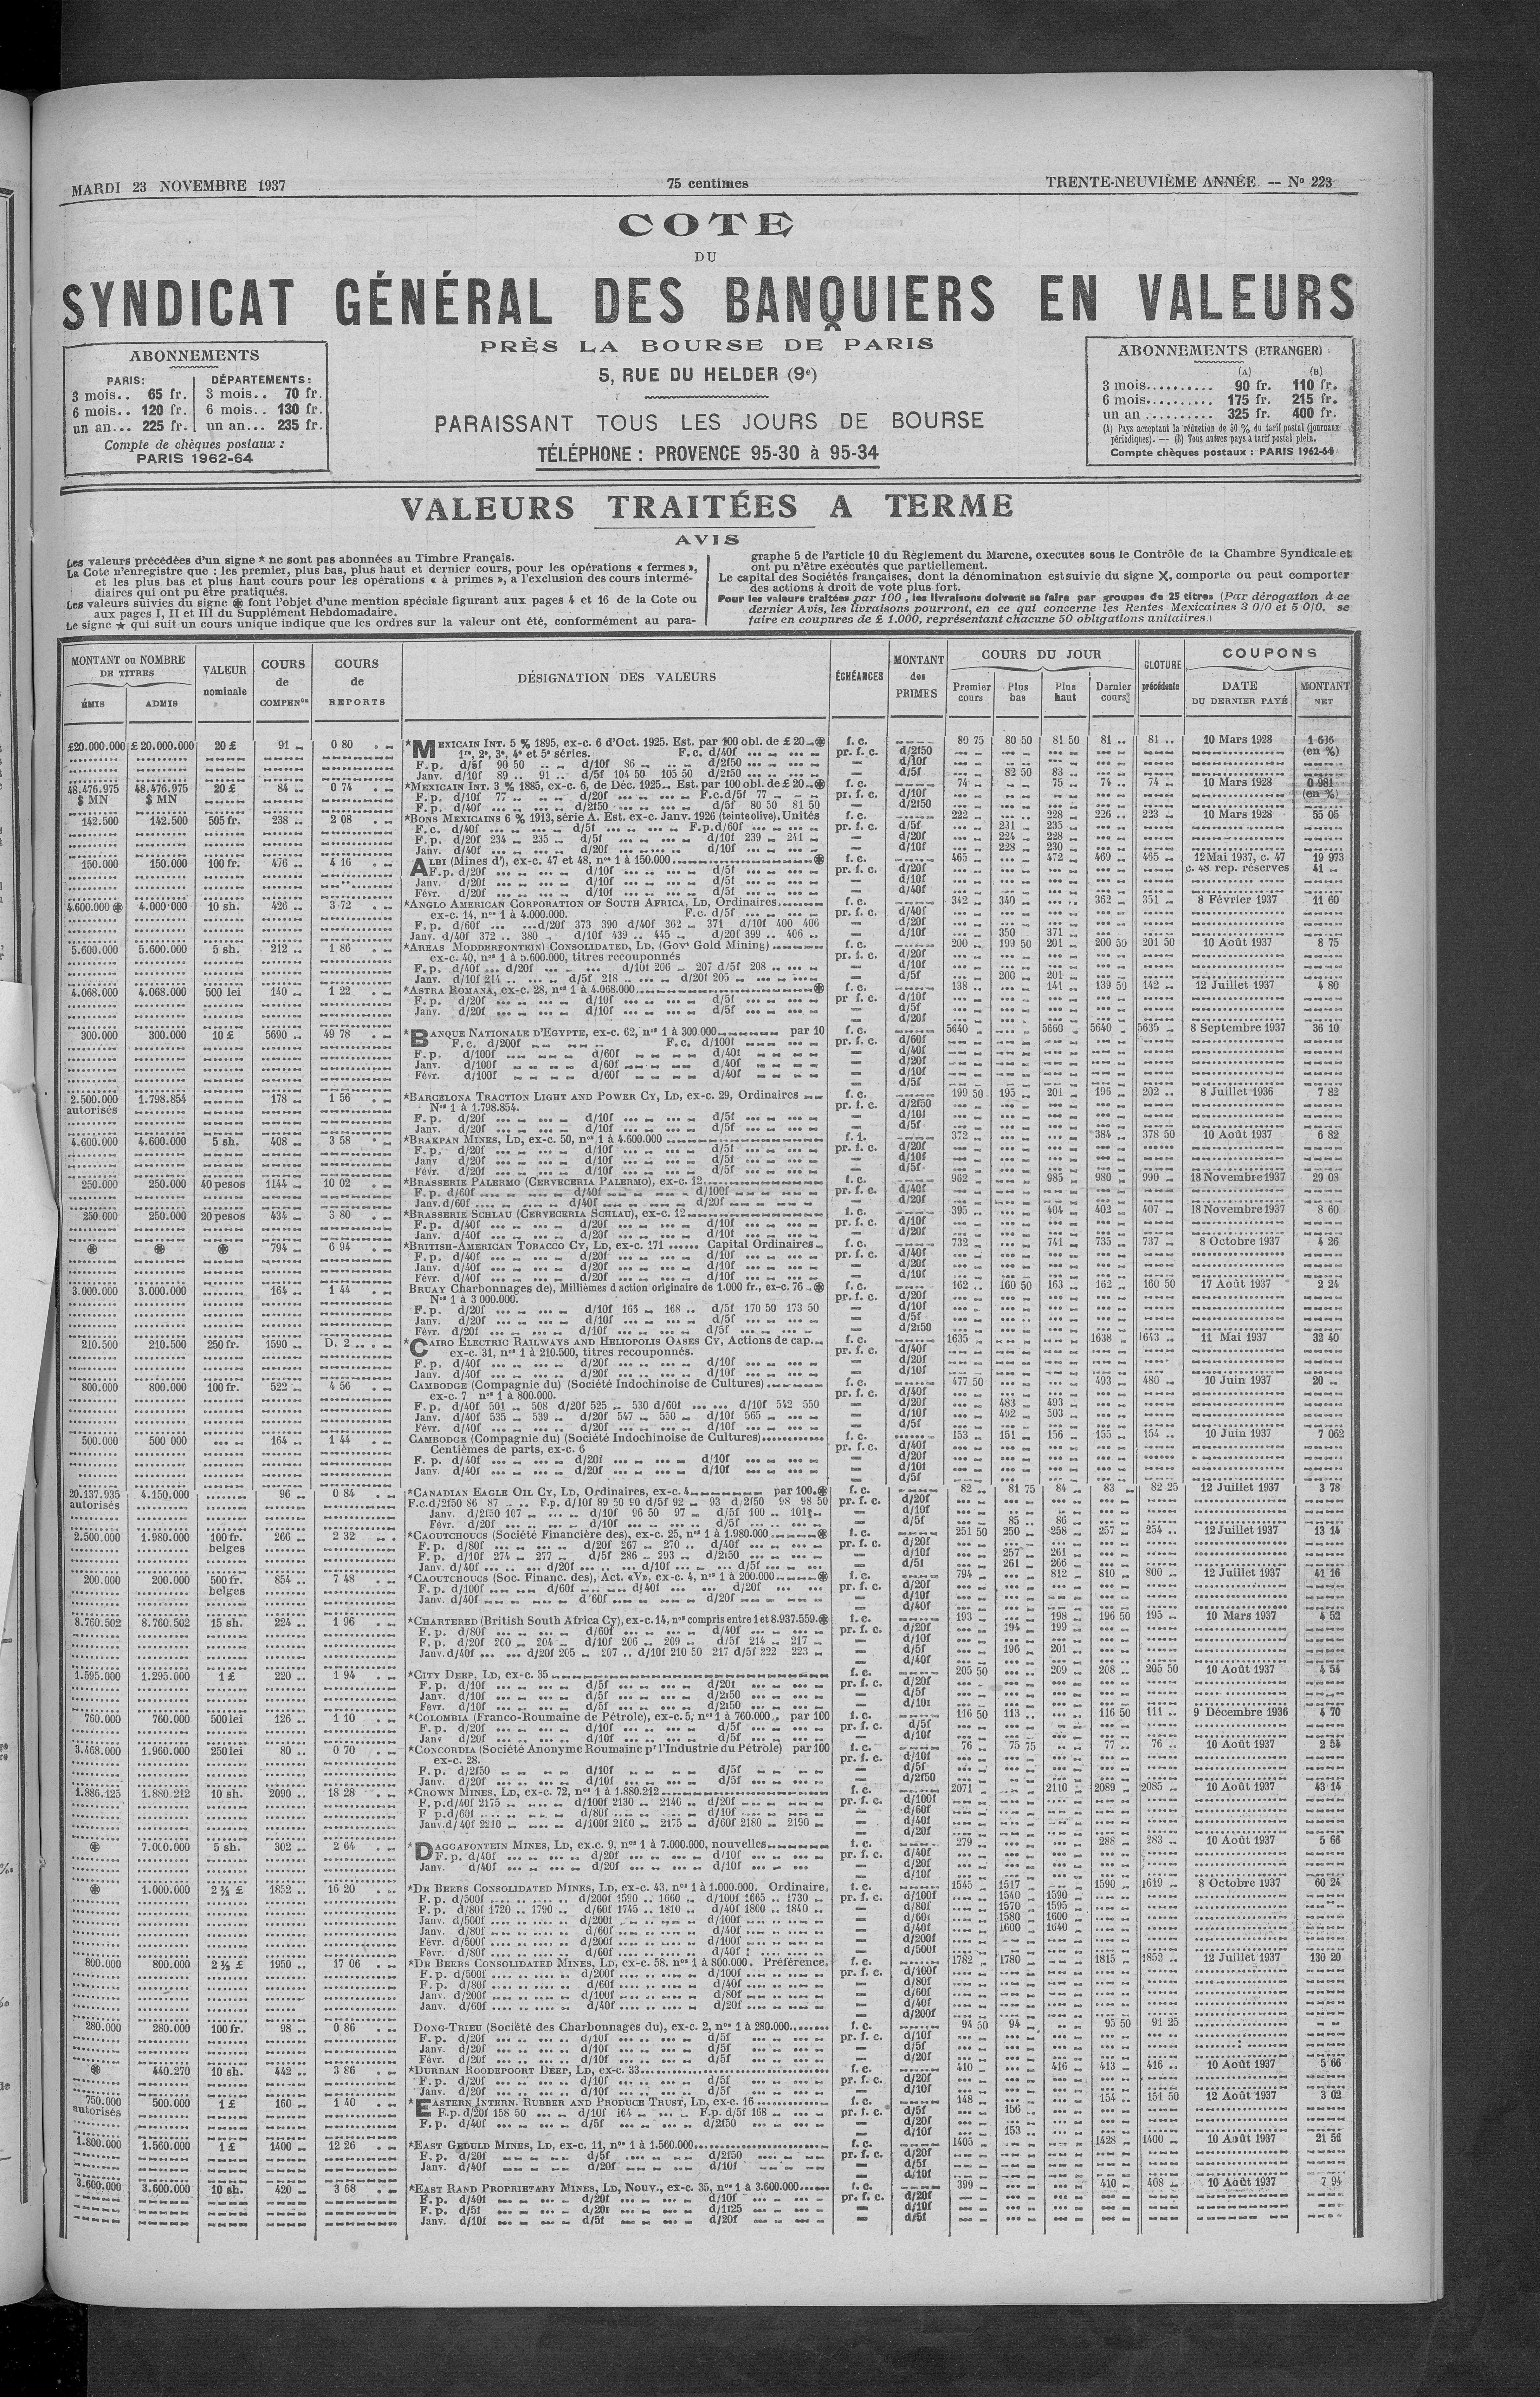 MARDI 23 NOVEMBRE 1937
75 centimes
TRENTE-NEUVIÈME ANNÉE. — Nº 223
COTE
DU
SYNDICAT GÉNÉRAL DES BANQUIERS EN VALEURS
PRÈS LA BOURSE DE PARIS
5, RUE DU HELDER (9e)
PARAISSANT TOUS LES JOURS DE BOURSE
TÉLÉPHONE : PROVENCE 95-30 à 95-34
ABONNEMENTS
PARIS: DÉPARTEMENTS:
3 mois.. 65 fr. 3 mois.. 70 fr.
6 mois.. 120 fr. 6 mois.. 130 fr.
un an... 225 fr. un an... 235 fr.
Compte de chèques postaux :
PARIS 1962-64
ABONNEMENTS (ETRANGER)
(A) (B)
3 mois.......... 90 fr. 110 fr.
6 mois.......... 175 fr. 215 fr.
un an .......... 325 fr. 400 fr.
(A) Pays acceptant la réduction de 50 % du tarif postal (journaux
périodiques). — (B) Tous autres pays à tarif postal plein.
Compte chèques postaux : PARIS 1962-64
VALEURS TRAITÉES A TERME
AVIS
Les valeurs précédées d'un signe * ne sont pas abonnées au Timbre Français.
La Cote n'enregistre que : les premier, plus bas, plus haut et dernier cours, pour les opérations « fermes »,
et les plus bas et plus haut cours pour les opérations « à primes », a l'exclusion des cours intermé-
diaires qui ont pu être pratiqués.
Les valeurs suivies du signe ⊛ font l'objet d'une mention spéciale figurant aux pages 4 et 16 de la Cote ou
aux pages I, II et III du Supplément Hebdomadaire.
Le signe ★ qui suit un cours unique indique que les ordres sur la valeur ont été, conformément au para-
graphe 5 de l'article 10 du Règlement du Marche, executes sous le Contrôle de la Chambre Syndicale et
ont pu n'être exécutés que partiellement.
Le capital des Sociétés françaises, dont la dénomination est suivie du signe X, comporte ou peut comporter
des actions à droit de vote plus fort.
Pour les valeurs traitées par 100, les livraisons doivent se faire par groupes de 25 titres (Par dérogation à ce
dernier Avis, les livraisons pourront, en ce qui concerne les Rentes Mexicaines 3 0/0 et 5 0/0. se
faire en coupures de £ 1.000, représentant chacune 50 obligations unitaires.)
MONTANT ou NOMBRE DE TITRES
ÉMIS ADMIS
VALEUR nominale
COURS de COMPENon
COURS de REPORTS
DÉSIGNATION DES VALEURS
ÉCHÉANCES
MONTANT des PRIMES
COURS DU JOUR
Premier cours Plus bas Plus haut Dernier cours
CLOTURE précédente
COUPONS
DATE DU DERNIER PAYÉ MONTANT NET
£20.000.000 £ 20.000.000 20 £ 91 0 80 *MEXICAIN INT. 5 % 1895, ex-c. 6 d'Oct. 1925. Est. par 100 obl. de £ 20 ⊛ f. c. 80 75 80 50 81 50 81 81 10 Mars 1928 1 636
1re, 2e, 3e, 4e et 5e séries. F.c. d/40f pr. f. c. d/2f50 (en %)
F. p. d/5f 90 50 d/10f 86 d/2f50 — d/10f
Janv. d/10f 89 91 d/5f 104 50 105 50 d/2f50 — d/5f 82 50 83
48.476.975 48.476.975 20 £ 84 0 74 *MEXICAIN INT. 3 % 1885, ex-c. 6, de Déc. 1925 Est. par 100 obl. de £ 20 ⊛ f. c. 74 75 74 74 10 Mars 1928 0 981
$ MN $ MN F. p. d/10f 77 d/20f F.c.d/5f 77 pr. f. c. d/10f (en %)
F. p. d/40f d/2f50 d/5f 80 50 81 50 — d/2f50
142.500 142.500 505 fr. 238 2 08 *BONS MEXICAINS 6 % 1913, série A. Est. ex-c. Janv. 1926 (teinte olive). Unités f. c. 222 228 226 223 10 Mars 1928 55 05
F. c. d/40f d/5f F.p.d/60f pr. f. c. d/5f 231 235
F. p. d/20f 234 235 d/5f d/10f 239 241 — d/20f 224 228
Janv. d/40f d/20f d/10f — d/10f 228 230
150.000 150.000 100 fr. 476 4 16 ALBI (Mines d'), ex-c. 47 et 48, nos 1 à 150.000 ⊛ f. c. 465 472 469 465 12 Mai 1937, c. 47 19 973
F. p. d/20f d/10f d/5f pr. f. c. d/20f c. 48 rep. réserves 41
Janv. d/20f d/10f d/5f — d/10f
Févr. d/20f d/10f d/5f — d/40f
4.600.000 ⊛ 4.000.000 10 sh. 426 3 72 *ANGLO AMERICAN CORPORATION OF SOUTH AFRICA, LD, Ordinaires f. c. 342 340 362 351 8 Février 1937 11 60
ex-c. 14, nos 1 à 4.000.000. F.c. d/5f pr. f. c. d/40f
F. p. d/60f d/20f 373 390 d/40f 362 371 d/10f 400 406 — d/20f
Janv. d/40f 372 380 d/10f 439 445 d/20f 399 406 — d/10f 350 371
5.600.000 5.600.000 5 sh. 212 1 86 *AREAS MODDERFONTEIN CONSOLIDATED, LD, (Govt Gold Mining) f. c. 200 199 50 201 200 50 201 50 10 Août 1937 8 75
ex-c. 40, nos 1 à 5.600.000, titres recouponnés pr. f. c. d/20f
F. p. d/40f d/20f d/10f 206 207 d/5f 208 — d/10f
Janv. d/10f 214 d/5f 218 d/20f 205 — d/5f 200 201
4.068.000 4.068.000 500 lei 140 1 22 *ASTRA ROMANA, ex-c. 28, nos 1 à 4.068.000 ⊛ f. c. 138 141 139 50 142 12 Juillet 1937 4 80
F. p. d/20f d/10f d/5f pr f. c. d/10f
Janv. d/20f d/10f d/5f — d/5f
— d/20f
300.000 300.000 10 £ 5690 49 78 *BANQUE NATIONALE D'EGYPTE, ex-c. 62, nos 1 à 300.000 par 10 f. c. 5640 5660 5640 5635 8 Septembre 1937 36 10
F. c. d/200f F. c. d/100f pr. f. c. d/60f
F. p. d/100f d/60f d/40f — d/40f
Janv. d/100f d/60f d/40f — d/20f
Févr. d/100f d/60f d/40f — d/10f
— d/5f
2.500.000 1.798.854 178 1 56 *BARCELONA TRACTION LIGHT AND POWER CY, LD, ex-c. 29, Ordinaires f. c. 199 50 195 201 196 202 8 Juillet 1936 7 82
autorisés Nos 1 à 1.798.854. pr. f. c. d/2f50
F. p. d/20f d/10f d/5f — d/10f
Janv. d/20f d/10f d/5f — d/5f
4.600.000 4.600.000 5 sh. 408 3 58 *BRAKPAN MINES, LD, ex-c. 50, nos 1 à 4.600.000 f. c. 372 384 378 50 10 Août 1937 6 82
F. p. d/20f d/10f d/5f pr. f. c. d/20f
Janv d/20f d/10f d/5f — d/10f
Févr. d/20f d/10f d/5f — d/5f
250.000 250.000 40 pesos 1144 10 02 *BRASSERIE PALERMO (CERVECERIA PALERMO), ex-c. 12 f. c. 962 985 980 990 18 Novembre 1937 29 08
F. p. d/60f d/40f d/100f pr. f. c. d/40f
Janv. d/60f d/40f d/20f — d/20f
250.000 250.000 20 pesos 434 3 80 *BRASSERIE SCHLAU (CERVECERIA SCHLAU), ex-c. 12 f. c. 395 404 402 407 18 Novembre 1937 8 60
F. p. d/40f d/20f d/10f pr. f. c. d/10f
Janv. d/40f d/20f d/10f — d/20f
⊛ ⊛ ⊛ 794 6 94 *BRITISH-AMERICAN TOBACCO CY, LD, ex-c. 171 Capital Ordinaires f. c. 732 741 735 737 8 Octobre 1937 4 26
F. p. d/40f d/20f d/10f pr. f. c. d/40f
Janv. d/40f d/20f d/10f — d/20f
Févr. d/40f d/20f d/10f — d/10f
3.000.000 3.000.000 164 1 44 BRUAY Charbonnages de), Millièmes d action originaire de 1.000 fr., ex-c. 76 ⊛ f. c. 162 160 50 163 162 160 50 17 Août 1937 2 24
Nos 1 à 3 000.000. pr. f. c. d/20f
F. p. d/20f d/10f 165 168 d/5f 170 50 173 50 — d/10f
Janv. d/20f d/10f d/5f — d/5f
Févr. d/20f d/10f d/5f — d/2f50
210.500 210.500 250 fr. 1590 D. 2 *CAIRO ELECTRIC RAILWAYS AND HELIOPOLIS OASES CY, Actions de cap. f. c. 1635 1638 1643 11 Mai 1937 32 40
ex-c. 31, nos 1 à 210.500, titres recouponnés. pr. f. c. d/40f
F. p. d/40f d/20f d/10f — d/20f
Janv. d/40f d/20f d/10f — d/10f
800.000 800.000 100 fr. 522 4 56 CAMBODGE (Compagnie du) (Société Indochinoise de Cultures) f. c. 477 50 493 480 10 Juin 1937 20
ex-c. 7 nos 1 à 800.000. pr. f. c. d/40f
F. p. d/40f 501 508 d/20f 525 530 d/60f d/10f 542 550 — d/20f 483 493
Janv. d/40f 535 539 d/20f 547 550 d/10f 565 — d/10f 492 503
Févr. d/40f d/20f d/10f — d/5f
500.000 500 000 164 1 44 CAMBODGE (Compagnie du) (Société Indochinoise de Cultures) f. c. 153 151 156 155 154 10 Juin 1937 7 062
Centièmes de parts, ex-c. 6 pr. f. c. d/40f
F. p. d/40f d/20f d/10f — d/20f
Janv. d/40f d/20f d/10f — d/10f
— d/5f
20.137.935 4.150.000 96 0 84 *CANADIAN EAGLE OIL CY, LD, Ordinaires, ex-c. 4 par 100 ⊛ f. c. 82 81 75 84 83 82 25 12 Juillet 1937 3 78
autorisés F.c.d/2f50 86 87 F.p. d/10f 89 50 90 d/5f 92 93 d/2f50 98 98 50 pr. f. c. d/20f
Janv. d/2f50 107 d/10f 96 50 97 d/5f 100 — d/10f
Févr. d/20f d/10f d/5f — d/5f 85 86
2.500.000 1.980.000 100 fr. 266 2 32 *CAOUTCHOUCS (Société Financière des), ex-c. 25, nos 1 à 1.980.000 ⊛ f. c. 251 50 250 258 257 254 12 Juillet 1937 13 14
belges F. p. d/80f d/20f 267 270 d/40f pr. f. c. d/20f
F. p. d/10f 274 277 d/5f 286 293 d/2f50 — d/10f 257 261
Janv. d/40f d/20f d/10f d/5f — d/5f 261 266
200.000 200.000 500 fr. 854 7 48 *CAOUTCHOUCS (Soc. Financ. des), Act. «V», ex-c. 4, nos 1 à 200.000 ⊛ f. c. 794 812 810 800 12 Juillet 1937 41 16
belges F. p. d/100f d/60f d/40f d/20f pr. f. c. d/20f
Janv. d/40f d/60f d/20f — d/10f
— d/40f
8.760.502 8.760.502 15 sh. 224 1 96 *CHARTERED (British South Africa Cy), ex-c. 14, nos compris entre 1 et 8.937.559 ⊛ f. c. 193 198 196 50 195 10 Mars 1937 4 52
F. p. d/80f d/60f d/40f pr. f. c. d/20f 194 199
F. p. d/20f 200 204 d/10f 206 209 d/5f 214 217 — d/10f
Janv. d/40f d/20f 205 207 d/10f 210 50 217 d/5f 222 223 — d/5f 196 201
— d/40f
1.595.000 1.295.000 1 £ 220 1 94 *CITY DEEP, LD, ex-c. 35 f. c. 205 50 209 208 205 50 10 Août 1937 4 54
F. p. d/10f d/5f d/20f pr. f. c. d/20f
Janv. d/10f d/5f d/2f50 — d/5f
Févr. d/10f d/5f d/2f50 — d/10f
760.000 760.000 500 lei 126 1 10 *COLOMBIA (Franco-Roumaine de Pétrole), ex-c. 5; nos 1 à 760.000 par 100 f. c. 116 50 113 116 50 111 9 Décembre 1936 4 70
F. p. d/20f d/10f d/5f pr. f. c. d/5f
Janv d/20f d/10f d/5f — d/10f
3.468.000 1.960.000 250 lei 80 0 70 *CONCORDIA (Société Anonyme Roumaine pr l'Industrie du Pétrole) par 100 f. c. 76 75 75 77 76 10 Août 1937 2 54
ex-c. 28. pr. f. c. d/10f
F. p. d/2f50 d/10f d/5f — d/5f
Janv. d/20f d/10f d/5f — d/2f50
1.886.125 1.880.212 10 sh. 2090 18 28 *CROWN MINES, LD, ex-c. 72, nos 1 à 1.880.212 f. c. 2071 2110 2089 2085 10 Août 1937 43 14
F. p. d/40f 2175 d/100f 2130 2146 d/20f pr. f. c. d/100f
F p. d/60f d/80f d/10f — d/60f
Janv. d/40f 2210 d/100f 2160 2175 d/60f 2180 2190 — d/40f
— d/20f
⊛ 7.000.000 5 sh. 302 2 64 *DAGGAFONTEIN MINES, LD, ex.c. 9, nos 1 à 7.000.000, nouvelles f. c. 279 288 283 10 Août 1937 5 66
F. p. d/40f d/20f d/10f pr. f. c. d/40f
Janv. d/40f d/20f d/10f — d/20f
— d/10f
⊛ 1.000.000 2 ½ £ 1852 16 20 *DE BEERS CONSOLIDATED MINES, LD, ex-c. 43, nos 1 à 1.000.000. Ordinaire. f. c. 1545 1517 1590 1619 8 Octobre 1937 60 24
F. p. d/500f d/200f 1590 1660 d/100f 1665 1730 pr. f. c. d/100f 1540 1590
F. p. d/80f 1720 1790 d/60f 1745 1810 d/40f 1800 1840 — d/80f 1570 1595
Janv. d/500f d/200f d/100f — d/60f 1580 1600
Janv. d/80f d/60f d/40f — d/40f 1600 1640
Févr. d/500f d/200f d/100f — d/200f
Févr. d/80f d/60f d/40f — d/500f
800.000 800.000 2 ½ £ 1950 17 06 *DE BEERS CONSOLIDATED MINES, LD, ex-c. 58. nos 1 à 800.000. Préférence. f. c. 1782 1780 1815 1852 12 Juillet 1937 130 20
F. p. d/500f d/200f d/100f pr. f. c. d/100f
F. p. d/80f d/60f d/40f — d/80f
Janv. d/200f d/100f d/80f — d/60f
Janv. d/60f d/40f d/20f — d/40f
— d/200f
280.000 280.000 100 fr. 98 0 86 DONG-TRIEU (Société des Charbonnages du), ex-c. 2, nos 1 à 280.000 f. c. 94 50 94 95 50 91 25
F. p. d/20f d/10f d/5f pr. f. c. d/10f
Janv. d/20f d/10f d/5f — d/5f
Févr. d/20f d/10f d/5f — d/20f
⊛ 440.270 10 sh. 442 3 86 *DURBAN ROODEPOORT DEEP, LD, ex-c. 33 f. c. 410 416 413 416 10 Août 1937 5 66
F. p. d/20f d/10f d/5f pr. f. c. d/20f
Janv. d/20f d/10f d/5f — d/10f
750.000 500.000 1 £ 160 1 40 *EASTERN INTERN. RUBBER AND PRODUCE TRUST, LD, ex-c. 16 f. c. 148 154 151 50 12 Août 1937 3 02
autorisés F.p. d/20f 158 50 d/10f 164 F.p. d/5f 168 pr. f. c. d/5f 156
F. p. d/40f d/5f d/2f50 — d/20f
— d/10f 153
1.800.000 1.560.000 1 £ 1400 12 26 *EAST GEDULD MINES, LD, ex-c. 11, nos 1 à 1.560.000 f. c. 1405 1428 1400 10 Août 1937 21 56
F. p. d/20f d/5f d/2f50 pr. f. c. d/20f
Janv. d/40f d/20f d/10f — d/5f
— d/10f
3.600.000 3.600.000 10 sh. 420 3 68 *EAST RAND PROPRIETARY MINES, LD, Nouv., ex-c. 35, nos 1 à 3.600.000 f. c. 399 410 408 10 Août 1937 7 94
F. p. d/40f d/20f d/10f pr. f. c. d/20f
F. p. d/5f d/20f d/1f25 — d/10f
Janv. d/10f d/5f d/20f — d/5f